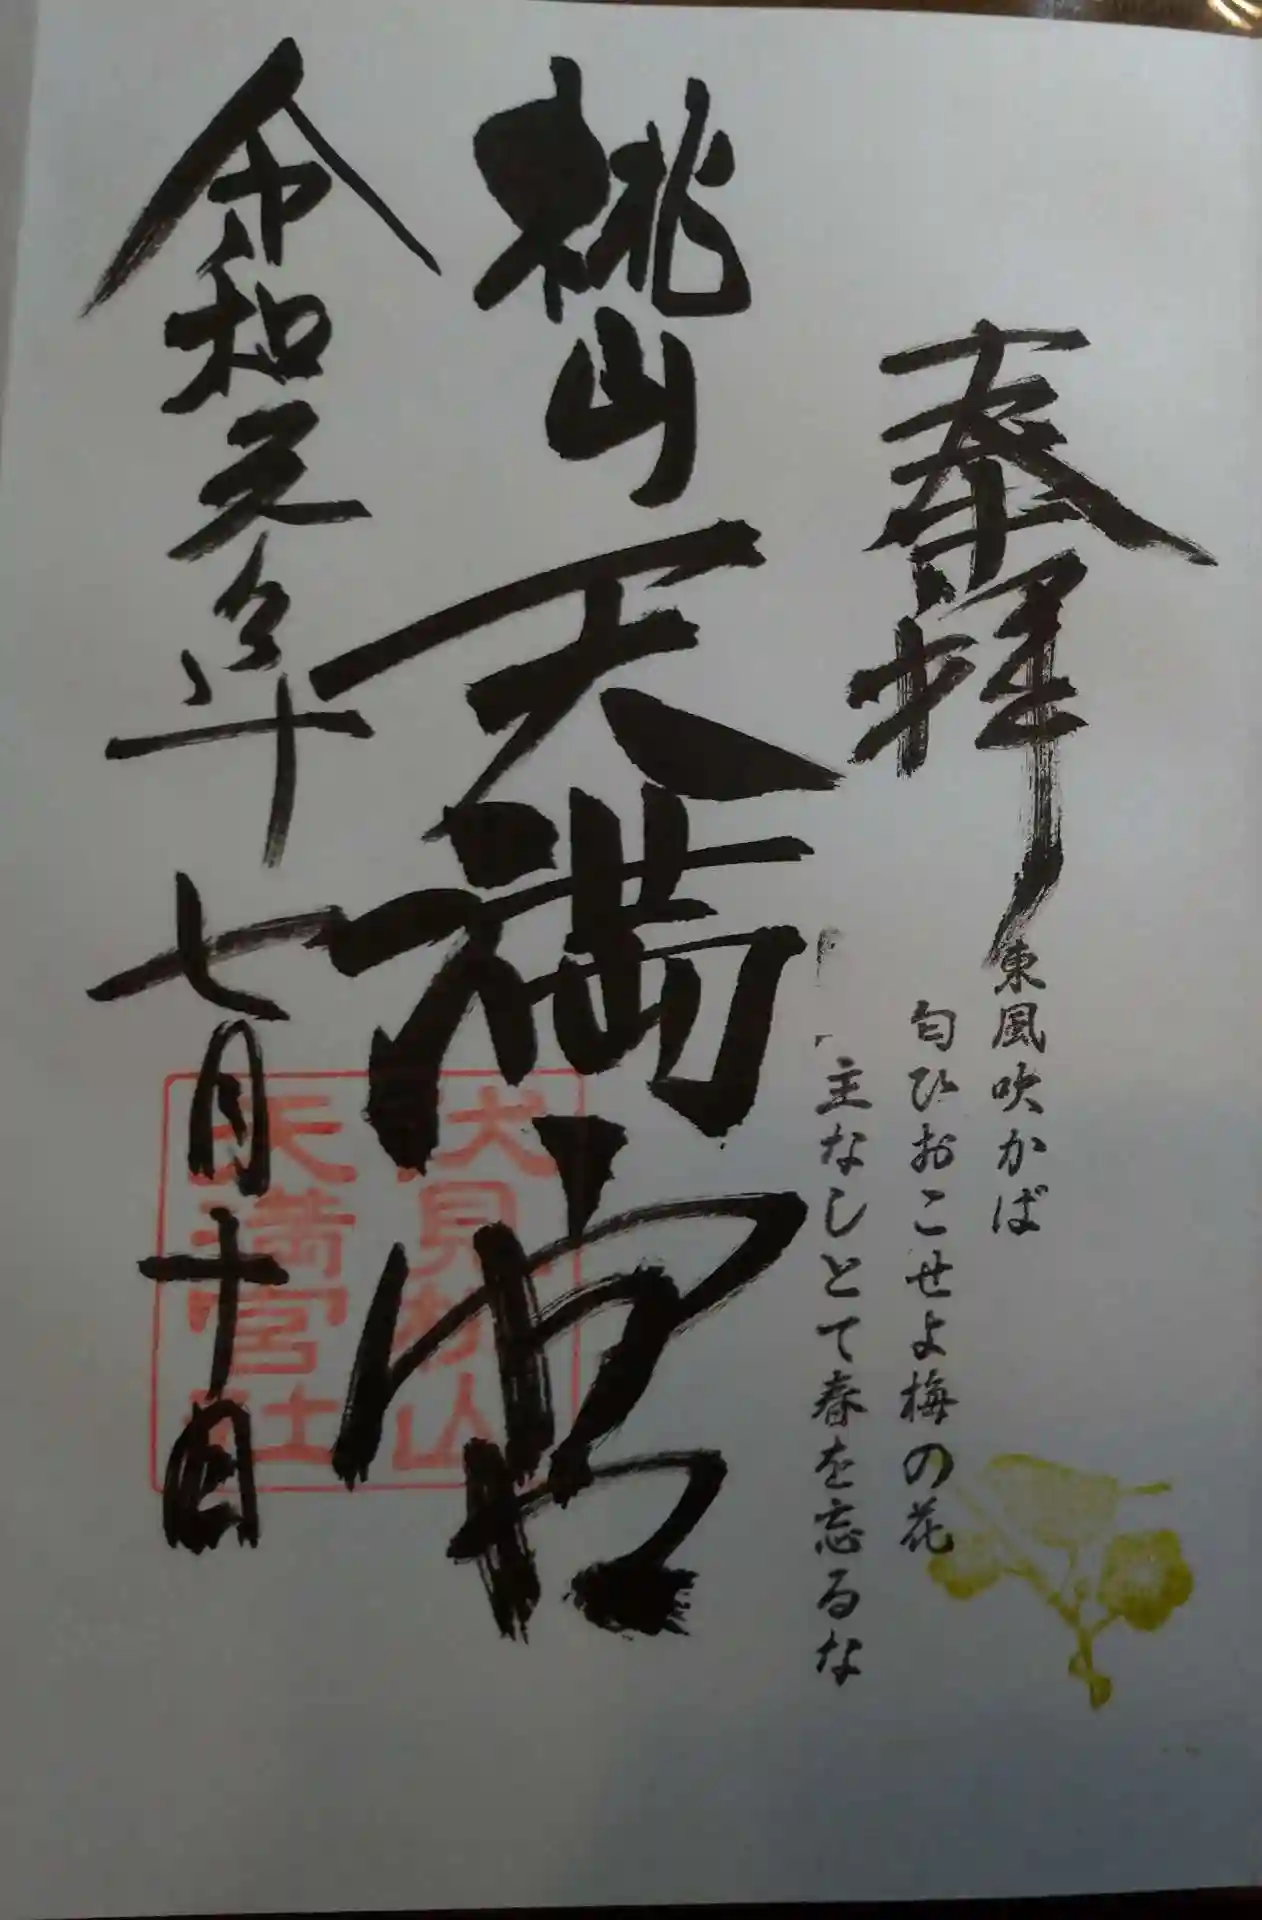 奉拝
東風吹かば
匂ひおこせよ梅の花
主なしとて春を忘るな
桃山天満宮
伏見桃山
天満宮社
令和元年七月十日